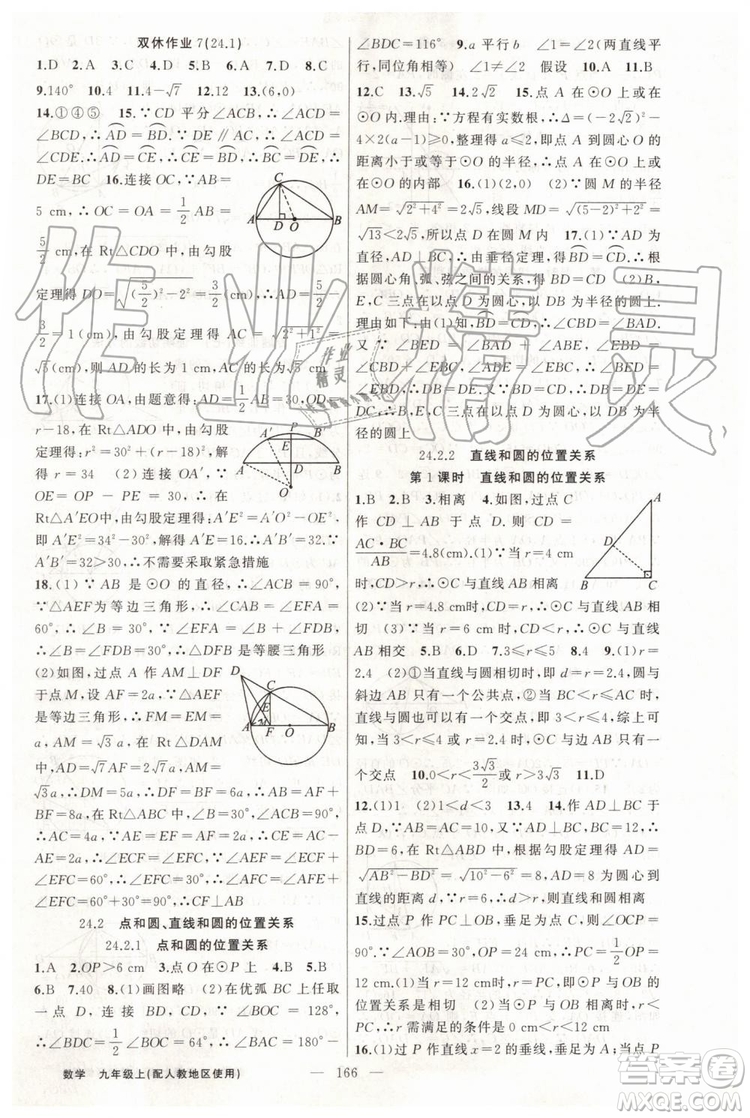 双休作业7(24.1)
1.D 2.A 3.C 4.D 5.D 6.D 7.D 8.C
9.140° 10.4 11.4-√7 12.12 13.(6,0)
14.①④⑤ 15.∵CD平分∠ACB,∴∠ACD=
∠BCD,∴AD=BD.∵DE∥AC,∴∠ACD=
∠CDE,∴AD=CE,∴BD=CE
16.连接OC,∵AB=
5 cm,∴OC=OA=1/2 AB=
5/2 cm,在Rt△CDO中,由勾股
定理得DO=√((5/2)²-2²)=
3/2=1(cm),由勾股定理得AC=√(2²+1²)=
√5(cm),则AD的长为1 cm,AC的长为√5 cm
17.(1)连接OA,由题意得:AD=1/2 AB=30,OD=
r-18,在Rt△ADO中,由勾股
定理得:r²=30²+(r-18)²,解
得r=34 (2)连接OA′,∵
OE=OP-PE=30,∴在
Rt△A′EO中,由勾股定理得:A′E²=A′O²-OE²,
即:A′E²=34²-30²,解得:A′E=16.∴A′B′=32.∵
A′B′=32>30,∴不需要采取紧急措施
18.(1)∵AB是⊙O的直径,∴∠ACB=90°,
∵△AEF为等边三角形,∴∠CAB=∠EFA=
60°,∴∠B=30°,∵∠EFA=∠B+∠FDB,
∴∠B=∠FDB=30°,∴△DFB是等腰三角形
(2)如图,过点A作AM⊥DF于
点M,设AF=2a,∵△AEF是等
边三角形,∴FM=EM=
a,AM=√3a,在Rt△DAM
中,AD=√7AF=2√7a,AM=
√3a,∴DM=5a,∴DF=BF=6a,
∴AB=8a,在Rt△ABC中,∵∠B=30°,∠ACB=90°,
∴AC=4a,∵AE=EF=AF=2a,∴CE=AC-
AE=2a,∴∠ECF=∠EFC,∵∠AEF=∠ECF+
∠EFC=60°,∴∠EFC=30°,∴∠AFC=∠AFE+
∠EFC=60°+30°=90°,∴CF⊥AB
24.2 点和圆、直线和圆的位置关系
24.2.1 点和圆的位置关系
1.A 2.OP>6 cm 3.点O在⊙P上 4.B 5.B
6.B 7.40 8.(1)画图略 (2)在优弧BC上任取
一点D,连接BD,CD,∵∠BOC=128°,
∴∠BDC=1/2∠BOC=64°,∴∠BEC=180°-
∠BDC=116° 9.a平行b ∠1=∠2 (两直线平
行,同位角相等) ∠1≠∠2 假设 10.A 11.A
12.C 13.√5 14.2√2 15.点A在⊙O上或在
⊙O内.理由:∵方程有实数根,∴Δ=(-2√2)²-
4×2(a-1)≥0,整理得a≤2,即点A到圆心O的
距离小于或等于⊙O的半径,∴点A在⊙O上或
在⊙O的内部 16.(1)(2,0) (2)∵圆M的半径
AM=√(2²+4²)=2√5,线段MD=√((5-2)²+2²)=
√13<2√5,∴点D在圆M内 17.(1)∵AD为
直径,AD⊥BC,∴BD=CD,∴
根据圆心角、弧、弦之间的关系,得BD=CD (2)B,
E,C三点在以D为圆心,以DB为半径的圆上.
理由如下:∵BD=CD,∴∠BAD=∠CBD,
∵∠DBE=∠CBD+∠CBE,∠DEB=∠BAD
+∠ABE,∠CBE=∠ABE,∴∠DBE=∠DEB,
∴DB=DE.由(1)知:BD=CD,∴DB=DE=
DC.∴B,E,C三点在以D为圆心,以DB为半
径的圆上
24.2.2 直线和圆的位置关系
第1课时 直线和圆的位置关系
1.B 2.B 3.相离 4.如图,过点C
作CD⊥AB于点D,则CD=
AC·BC/AB=4.8(cm).(1)当r=4 cm
时,CD>r,∴⊙C与直线AB相离
(2)当r=4.8 cm时,CD=r,∴⊙C与直线AB相
切 (3)当r=6 cm时,CD<r,∴⊙C与直线
AB相交 5.B 6.D 7.3≤r≤5 8.4 9.(1)r=
2.4 (2)当直线与圆相切时,即r=2.4,圆与
斜边AB只有一个公共点;当BC<r≤AC时,
直线与圆有一个交点,即3<r≤4,综上可
知:当3<r≤4或r=2.4时,圆与斜边AB只有一
个交点 10.0<r<3√3/2或r>3√3/2 11.D
12.(1)1 (2)1<d<3 13.4 14.作AD⊥BC于
点D,∵AB=AC,∴BD=CD,又∵BC=16,∴
BD=8.又∵AB=10,∴在Rt△ABD中,AD=
√(AB²-BD²)=√(10²-8²)=6,∵⊙A的
直径为14,∴r=7.∵d<r,∴⊙A与
直线的距离,∴d<r,∴直线BC与⊙A相交
15.过点P作PC⊥OB,垂足为点C,则∠OCP=
90°.∵∠AOB=30°,OP=24 cm,∴PC=1/2 OP=
12 cm.(1)当r=12 cm时,r=PC,∴⊙P与OB的
位置关系是相切 (2)当⊙P与OB相离时,r<PC,
∴r需满足的条件是0<r<12 cm
16.(1)过点P作直线x=2的垂线,垂足为A.当点
数学 九年级上(配人教地区使用) — 166 —
作业精灵